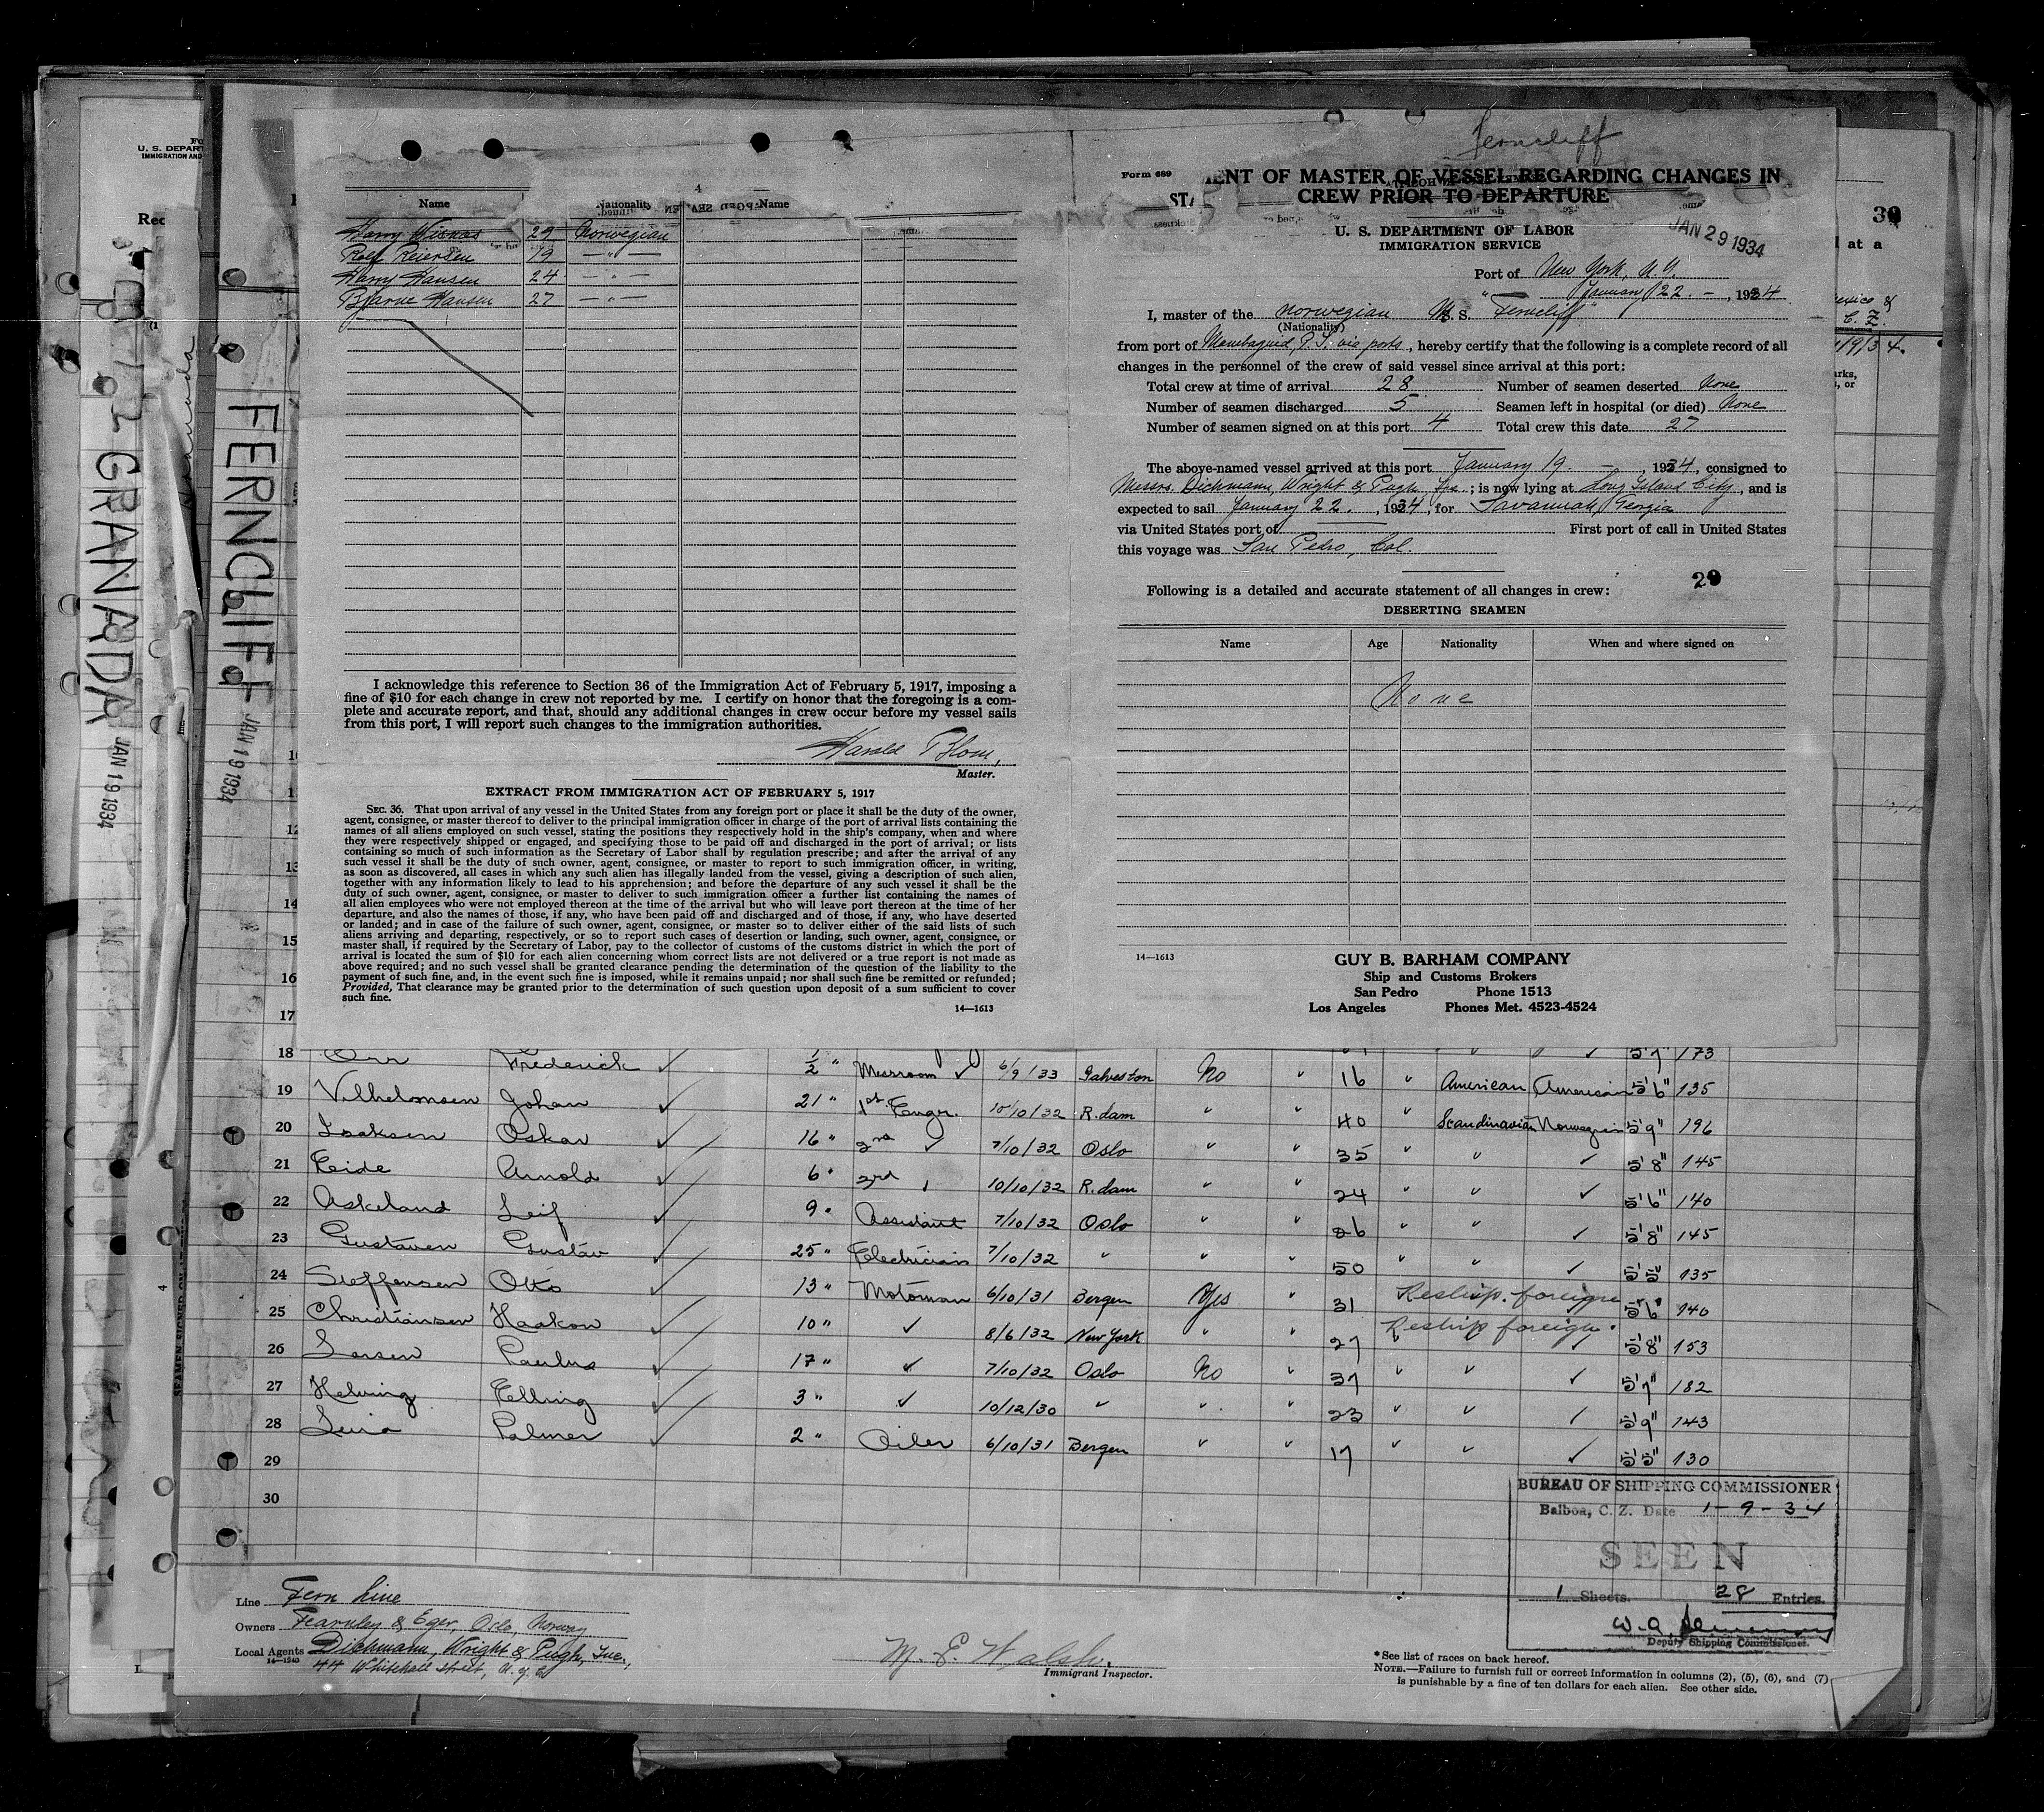 Ferncliff
Form 689
STA ENT OF MASTER OF VESSEL REGARDING CHANGES IN
CREW PRIOR TO DEPARTURE
JAN 29 1934
U. S. DEPARTMENT OF LABOR
IMMIGRATION SERVICE
Port of New York, N.Y.
January 22. - , 1934
I, master of the Norwegian M. S. "Ferncliff"
(Nationality)
from port of P. I. via ports, hereby certify that the following is a complete record of all
changes in the personnel of the crew of said vessel since arrival at this port:
Total crew at time of arrival 28 Number of seamen deserted None
Number of seamen discharged 5 Seamen left in hospital (or died) None
Number of seamen signed on at this port 4 Total crew this date 27
The above-named vessel arrived at this port January 19. - , 1934, consigned to
Messrs. Dichmann, Wright & Pugh, Inc; is now lying at Long Island City, and is
expected to sail January 22. , 1934, for Savannah, Georgia
via United States port of First port of call in United States
this voyage was San Pedro, Cal.
29
Following is a detailed and accurate statement of all changes in crew:
DESERTING SEAMEN
Name Age Nationality When and where signed on
None
14—1613
GUY B. BARHAM COMPANY
Ship and Customs Brokers
San Pedro Phone 1513
Los Angeles Phones Met. 4523-4524
4
Name Nationality Name
Harry 29 Norwegian
Rolf Reiersen 19 — " —
Harry Hansen 24 — " —
Bjarne Hansen 27 — " —
I acknowledge this reference to Section 36 of the Immigration Act of February 5, 1917, imposing a
fine of $10 for each change in crew not reported by me. I certify on honor that the foregoing is a com-
plete and accurate report, and that, should any additional changes in crew occur before my vessel sails
from this port, I will report such changes to the immigration authorities.
Harald Blom,
Master.
EXTRACT FROM IMMIGRATION ACT OF FEBRUARY 5, 1917
SEC. 36. That upon arrival of any vessel in the United States from any foreign port or place it shall be the duty of the owner,
agent, consignee, or master thereof to deliver to the principal immigration officer in charge of the port of arrival lists containing the
names of all aliens employed on such vessel, stating the positions they respectively hold in the ship's company, when and where
they were respectively shipped or engaged, and specifying those to be paid off and discharged in the port of arrival; or lists
containing so much of such information as the Secretary of Labor shall by regulation prescribe; and after the arrival of any
such vessel it shall be the duty of such owner, agent, consignee, or master to report to such immigration officer, in writing,
as soon as discovered, all cases in which any such alien has illegally landed from the vessel, giving a description of such alien,
together with any information likely to lead to his apprehension; and before the departure of any such vessel it shall be the
duty of such owner, agent, consignee, or master to deliver to such immigration officer a further list containing the names of
all alien employees who were not employed thereon at the time of the arrival but who will leave port thereon at the time of her
departure, and also the names of those, if any, who have been paid off and discharged and of those, if any, who have deserted
or landed; and in case of the failure of such owner, agent, consignee, or master so to deliver either of the said lists of such
aliens arriving and departing, respectively, or so to report such cases of desertion or landing, such owner, agent, consignee, or
master shall, if required by the Secretary of Labor, pay to the collector of customs of the customs district in which the port of
arrival is located the sum of $10 for each alien concerning whom correct lists are not delivered or a true report is not made as
above required; and no such vessel shall be granted clearance pending the determination of the question of the liability to the
payment of such fine, and, in the event such fine is imposed, while it remains unpaid; nor shall such fine be remitted or refunded;
Provided, That clearance may be granted prior to the determination of such question upon deposit of a sum sufficient to cover
such fine.
14—1613
U. S. DEPART
IMMIGRATION AND
Rec
GRANADA
JAN 19 1934
FERNCLIFF
JAN 19 1934
30
d at a
C. Z.
1/9/34.
12
13
14
15
16
17
18 Orr Frederick ½ " Messroom 6/9/33 Galveston No " 16 " American American 5'6" 135
5'7" 173
19 Vilhelmsen Johan 21 " 1st Engr. 10/10/32 R.dam " " 40 " Scandinavian Norwegian 5'9" 196
20 Isaksen Oskar 16 " 2nd " 7/10/32 Oslo " " 35 " " " 5'8" 145
21 Eide Arnold 6 " 3rd " 10/10/32 R.dam " " 24 " " " 5'6" 140
22 Askeland Leif 9 " Assistant 7/10/32 Oslo " " 26 " " " 5'8" 145
23 Gustavsen Gustav 25 " Electrician 7/10/32 " " " 50 " " " 5'5" 135
24 Steffensen Otto 13 " Motorman 6/10/31 Bergen Yes " 31 Reship. foreign 5'6" 140
25 Christiansen Haakon 10 " " 8/6/32 New York " " 27 Reship foreign. 5'8" 153
26 Larsen Paulus 17 " " 7/10/32 Oslo No " 37 " " " 5'7" 182
27 Helving Elling 3 " " 10/12/30 " " " 23 " " " 5'9" 143
28 Palmer 2 " Oiler 6/10/31 Bergen " " 17 " " " 5'5" 130
29
30
BUREAU OF SHIPPING COMMISSIONER
Balboa, C. Z. Date 1-9-34
SEEN
1 Sheets. 28 Entries.
Deputy Shipping Commissioner.
Line Fern Line
Owners Fearnley & Eger, Oslo, Norway
Local Agents Dichmann, Wright & Pugh, Inc.,
14—1240
44 Whitehall Street, N.Y.C.
M. E. Walsh.
Immigrant Inspector.
*See list of races on back hereof.
NOTE.—Failure to furnish full or correct information in columns (2), (5), (6), and (7)
is punishable by a fine of ten dollars for each alien. See other side.